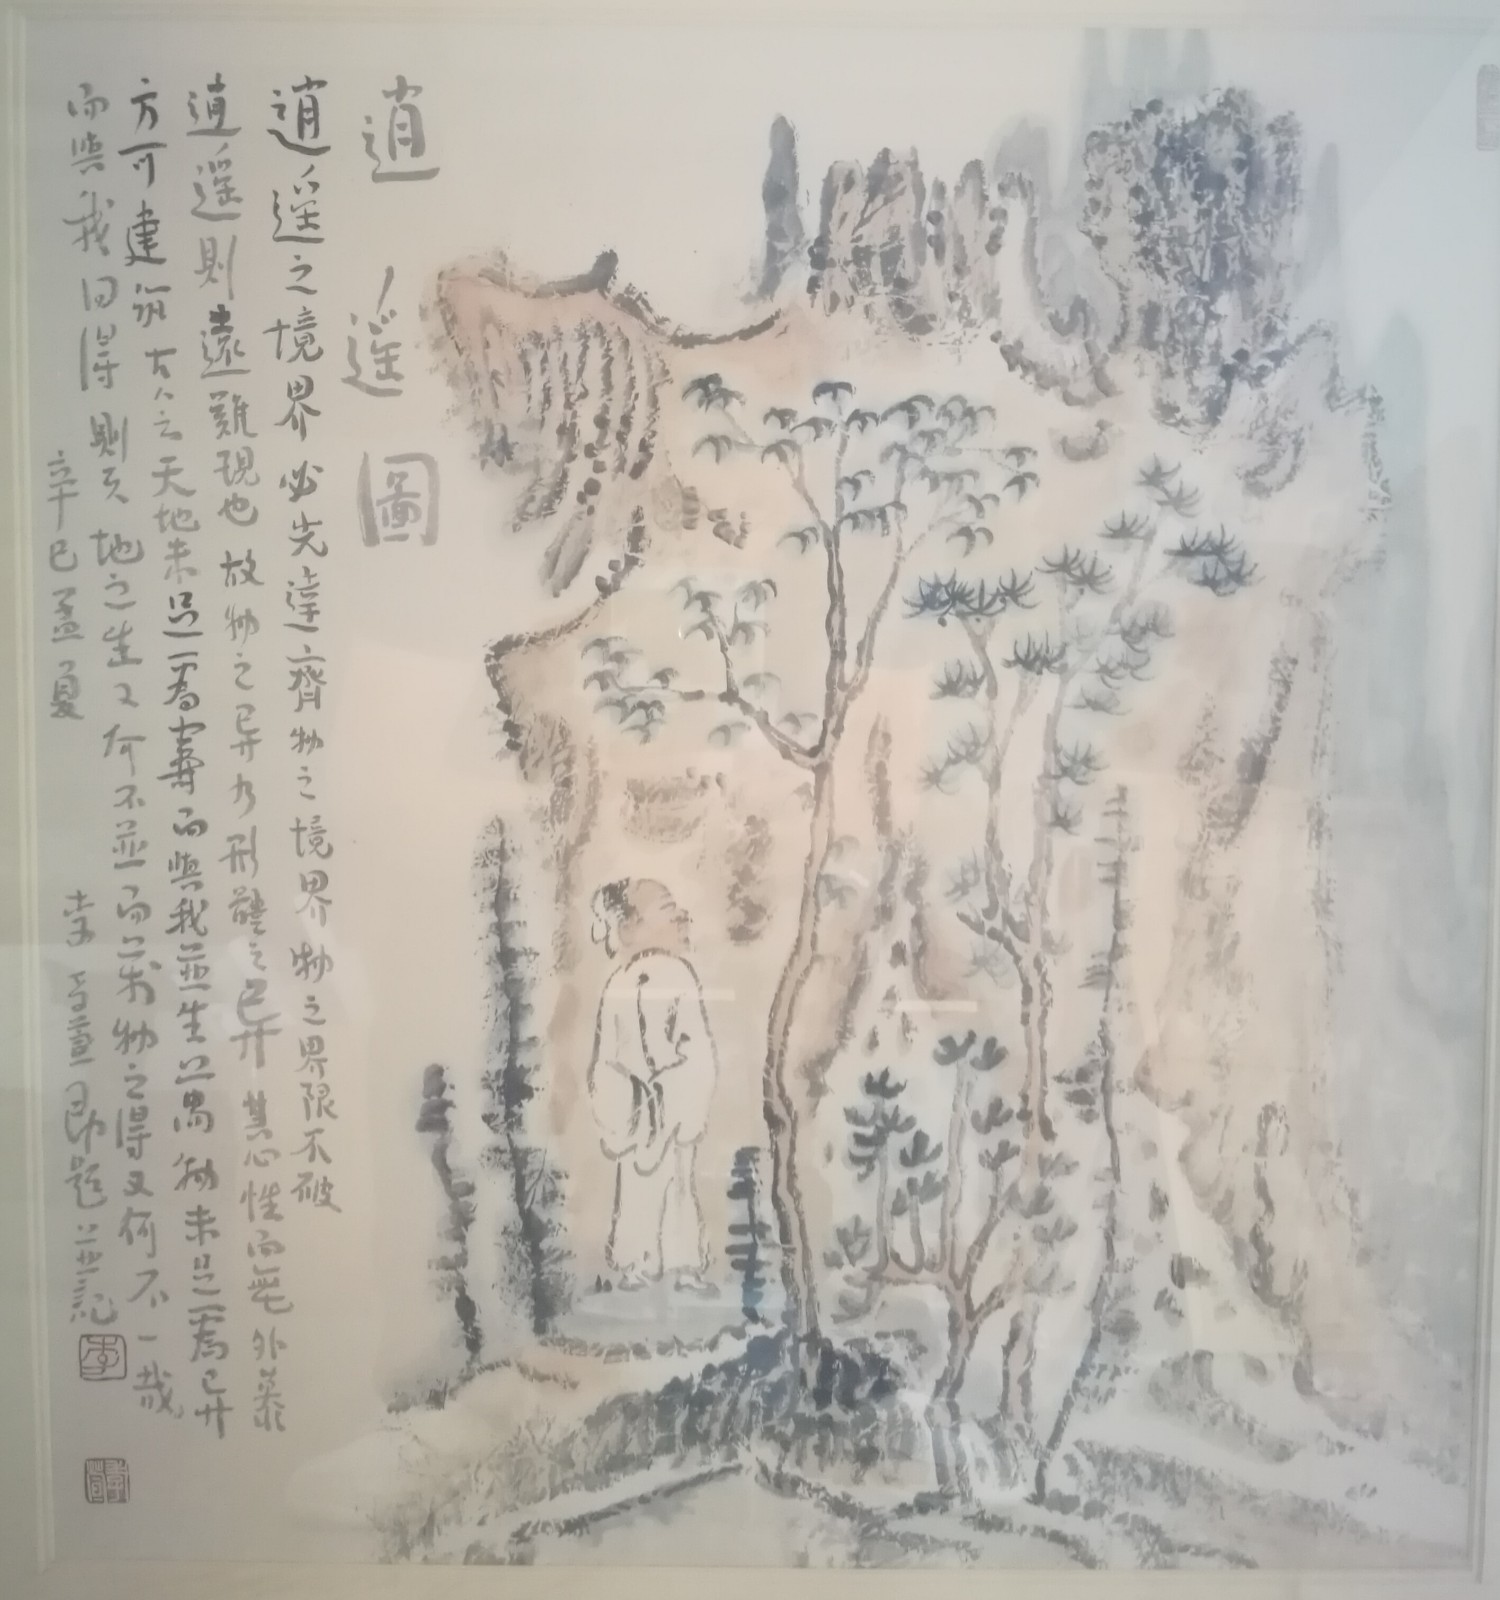 逍遥圖
逍遥之境界必先達齊物之境界物之界限不破
逍遥則遠難現也故物之异乃形體之异慧心性而無外慕
方可建筑古人云天地未足爲壽而與我並生万物未足爲异
而與我同得則天地之生又何不並而万物之得又何不一哉
辛巳孟夏 李 題並記
李